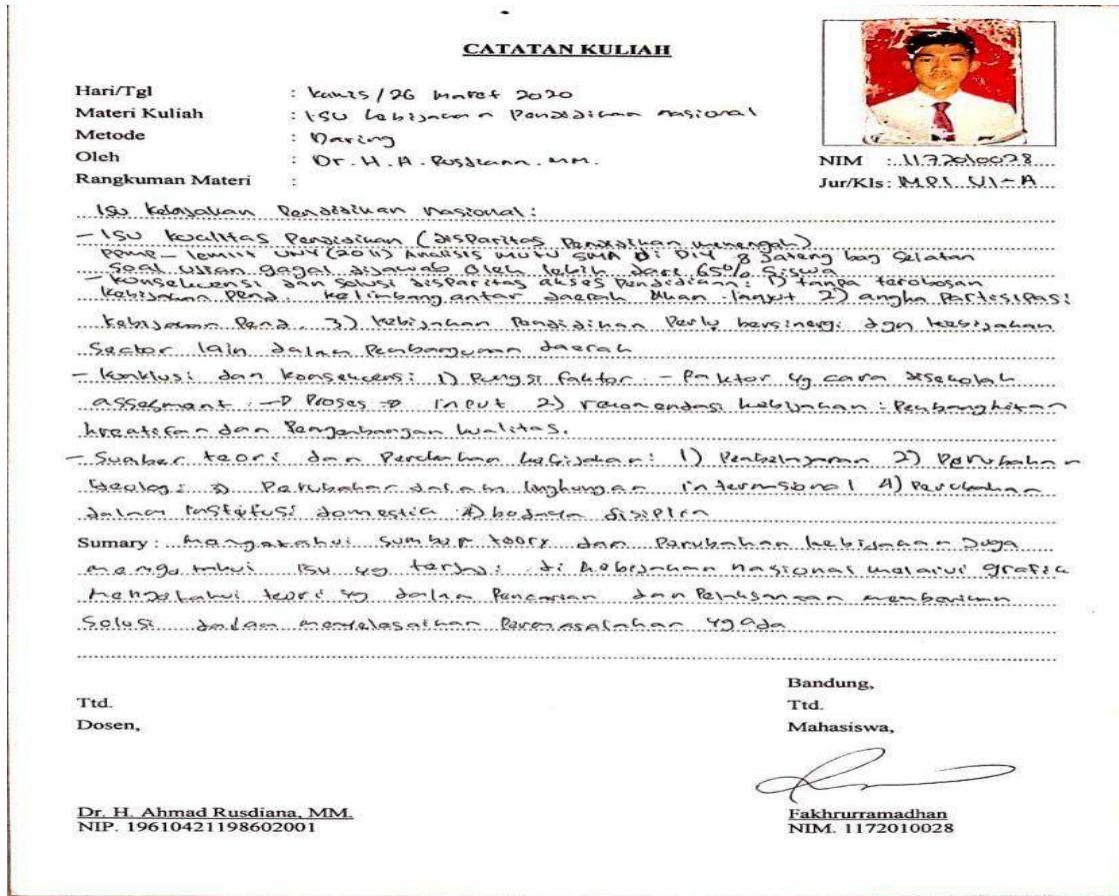 CATATAN KULIAH
Hari/Tgl : Kamis/26 Maret 2020
Materi Kuliah : Isu kebijakan Pendidikan nasional
Metode : Daring
Oleh : Dr. H. A. Rusdiana. MM.
Rangkuman Materi :
NIM : 1172010028
Jur/Kls : MPI VI-A
Isu Kebijakan Pendidikan Nasional:
- Isu kualitas Pendidikan (disparitas Pendidikan menengah)
PPMP - lemlit UNY (2011) Analisis mutu SMA di DIY 8 Jateng bag Selatan
Soal ujian gagal dijawab oleh lebih dari 65% siswa
- konsekuensi dan solusi disparitas akses Pendidikan: 1) tanpa terobosan
kebijakan pend. antar daerah akan lanjut 2) angka Partisipasi
kebijakan Pend. 3) kebijakan Pendidikan Perlu bersinergi dgn kebijakan
Sector lain dalam Pembangunan daerah
- konklusi dan konsekuensi: 1) Fungsi faktor - Faktor yg cara disekolah
assesment : → Proses → input 2) rekomendasi kebijakan : Pembangkitan
dan Pengembangan kualitas.
- Sumber teori dan Perubahan kebijakan: 1) Pembelajaran 2) Perubahan
Ideologi 3) Perubahan dalam lingkungan internasional 4) Perubahan
dalam institusi domestic 4) budaya disiplin
Sumary : mengetahui sumber teory dan Perubahan kebijakan Juga
mengetahui isu yg terjadi di kebijakan nasional melalui grafik
mengetahui teori yg dalam Pencarian dan Pelaksanaan memberikan
Solusi dalam menyelesaikan Permasalahan yg ada
Bandung,
Ttd. Ttd.
Dosen, Mahasiswa,
Dr. H. Ahmad Rusdiana, MM. Fakhrurramadhan
NIP. 19610421198602001 NIM. 1172010028